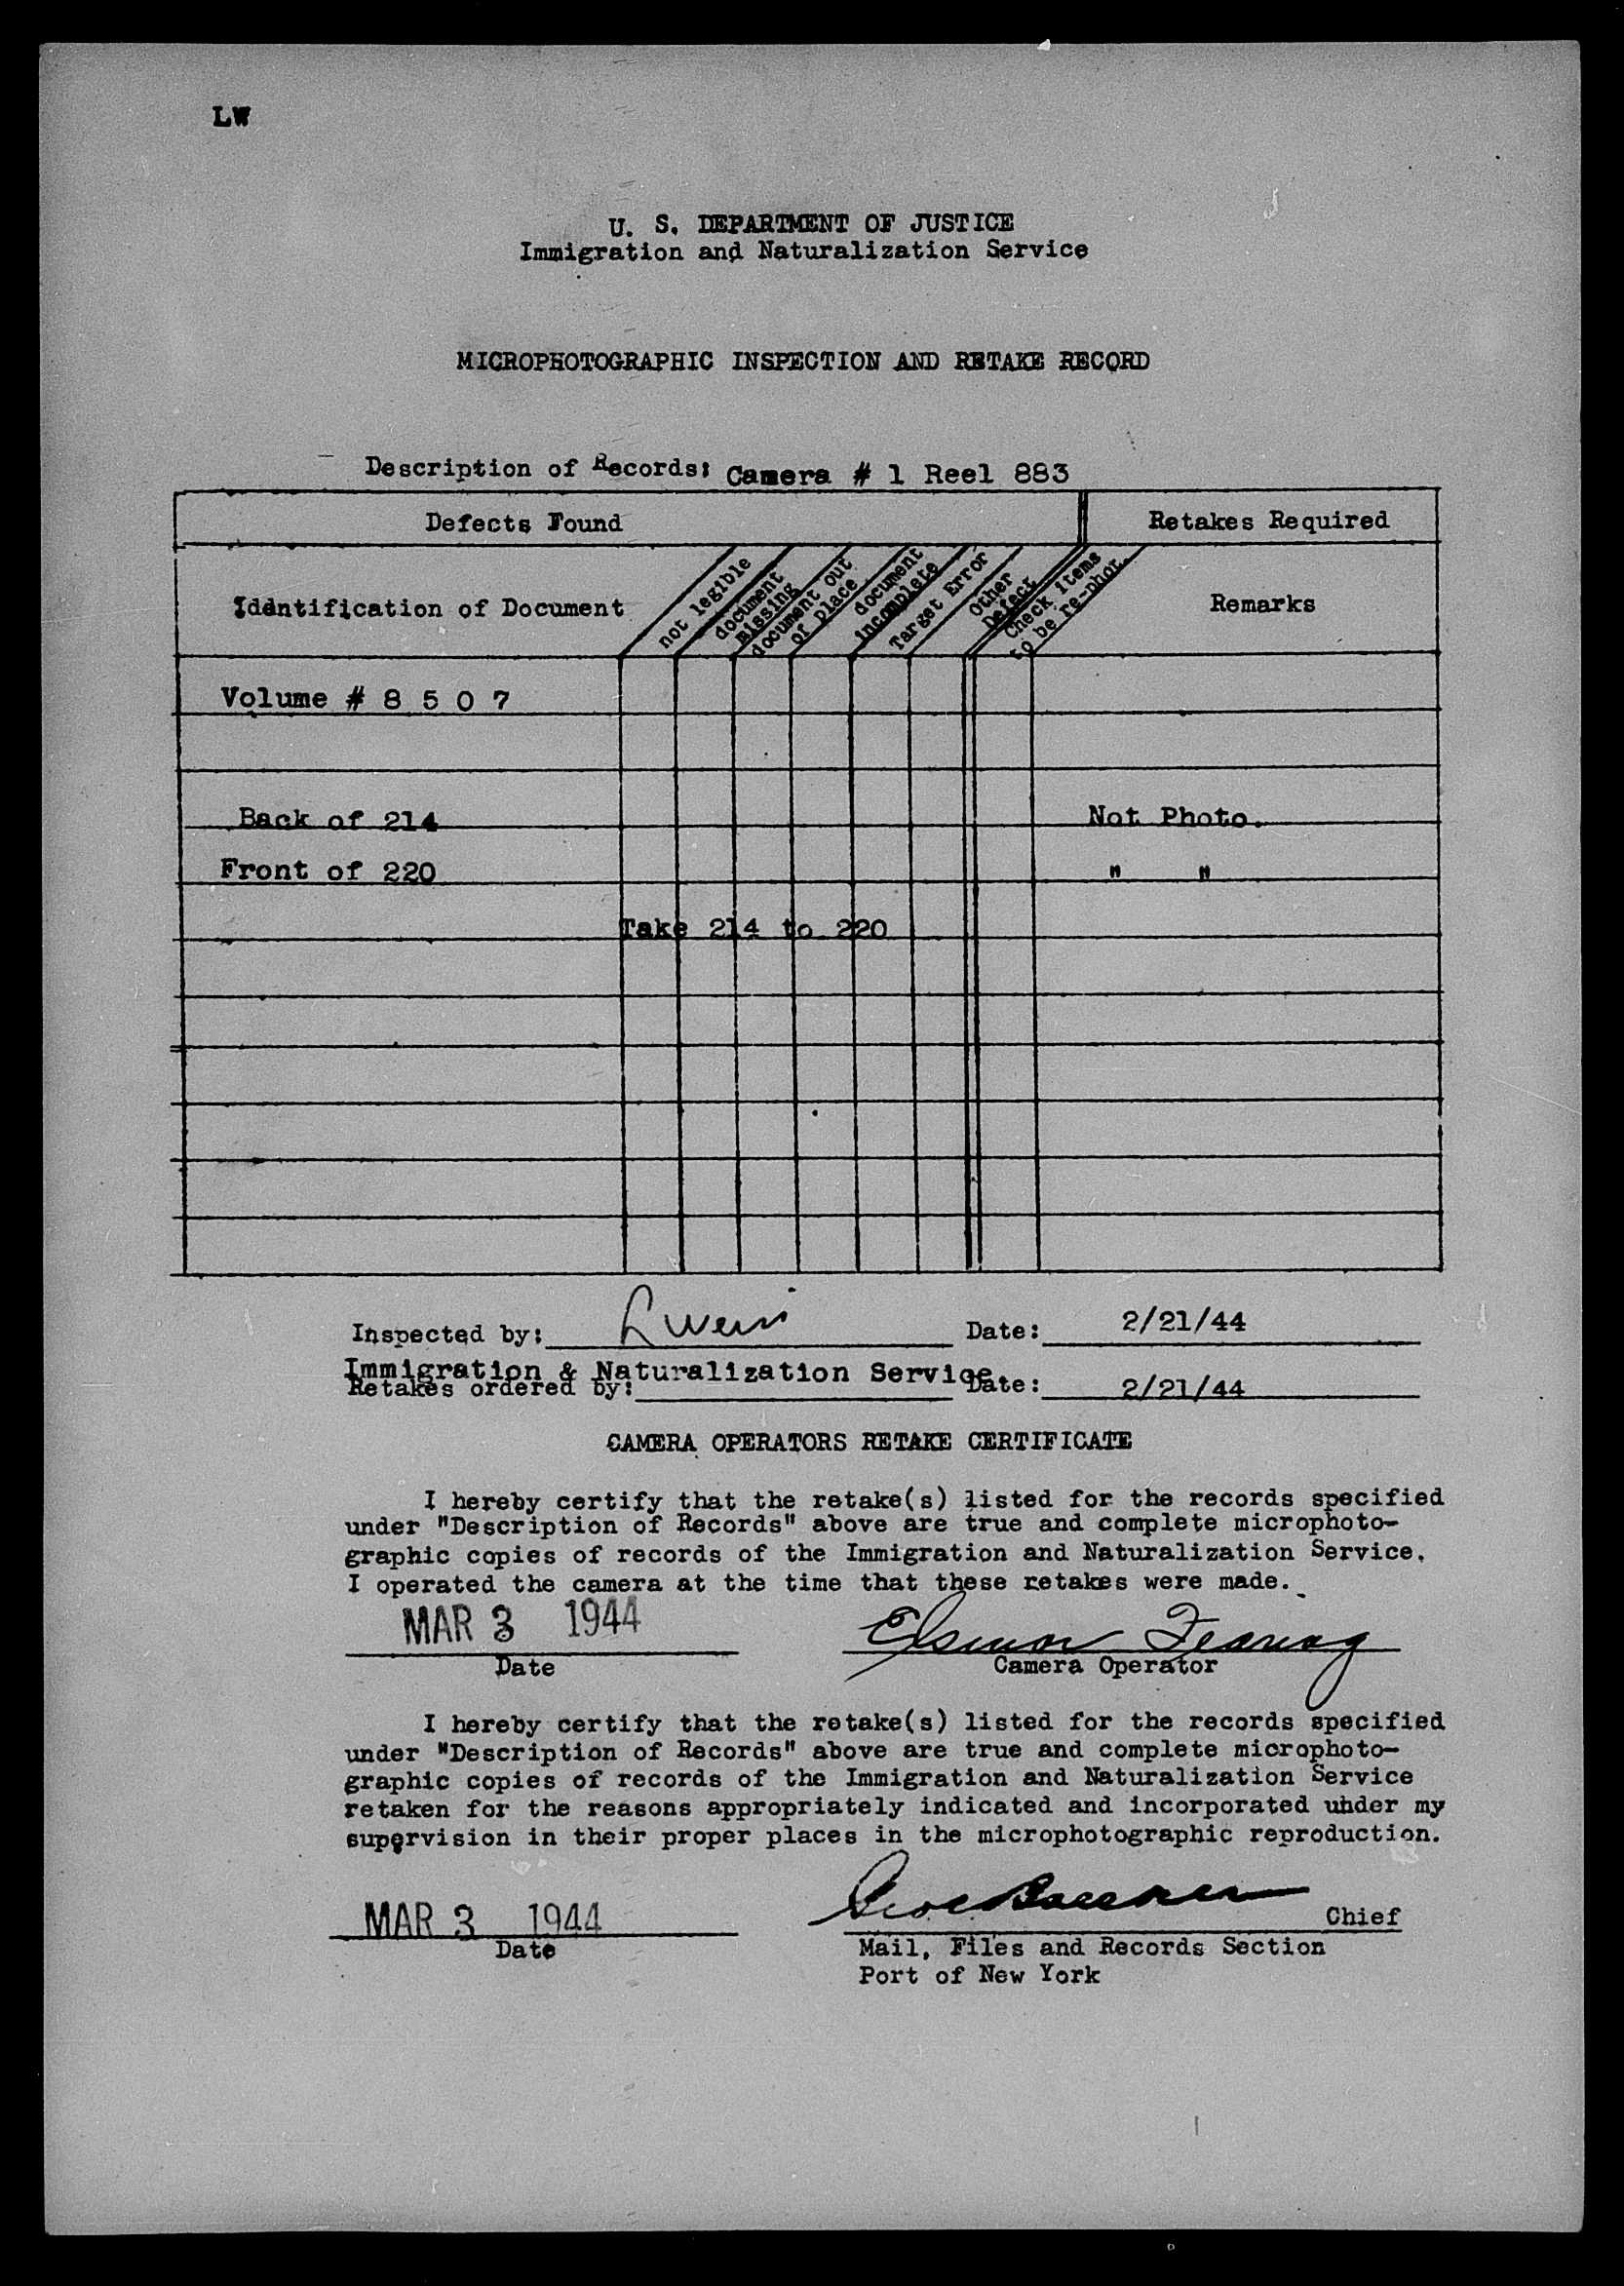 LW
U. S. DEPARTMENT OF JUSTICE
Immigration and Naturalization Service
MICROPHOTOGRAPHIC INSPECTION AND RETAKE RECORD
Description of Records: Camera # 1 Reel 883
Defects Found
Retakes Required
Identification of Document
not legible
document missing
document out of place
document incomplete
Target Error
Other Defect
Check items to be re-phot.
Remarks
Volume # 8 5 0 7
Back of 214 Not Photo.
Front of 220 " "
Take 214 to 220
Inspected by: L Weiss Date: 2/21/44
Immigration & Naturalization Service
Retakes ordered by: Date: 2/21/44
CAMERA OPERATORS RETAKE CERTIFICATE
I hereby certify that the retake(s) listed for the records specified
under "Description of Records" above are true and complete microphoto-
graphic copies of records of the Immigration and Naturalization Service.
I operated the camera at the time that these retakes were made.
MAR 3 1944
Date
Camera Operator
I hereby certify that the retake(s) listed for the records specified
under "Description of Records" above are true and complete microphoto-
graphic copies of records of the Immigration and Naturalization Service
retaken for the reasons appropriately indicated and incorporated under my
supervision in their proper places in the microphotographic reproduction.
MAR 3 1944
Chief
Date
Mail, Files and Records Section
Port of New York